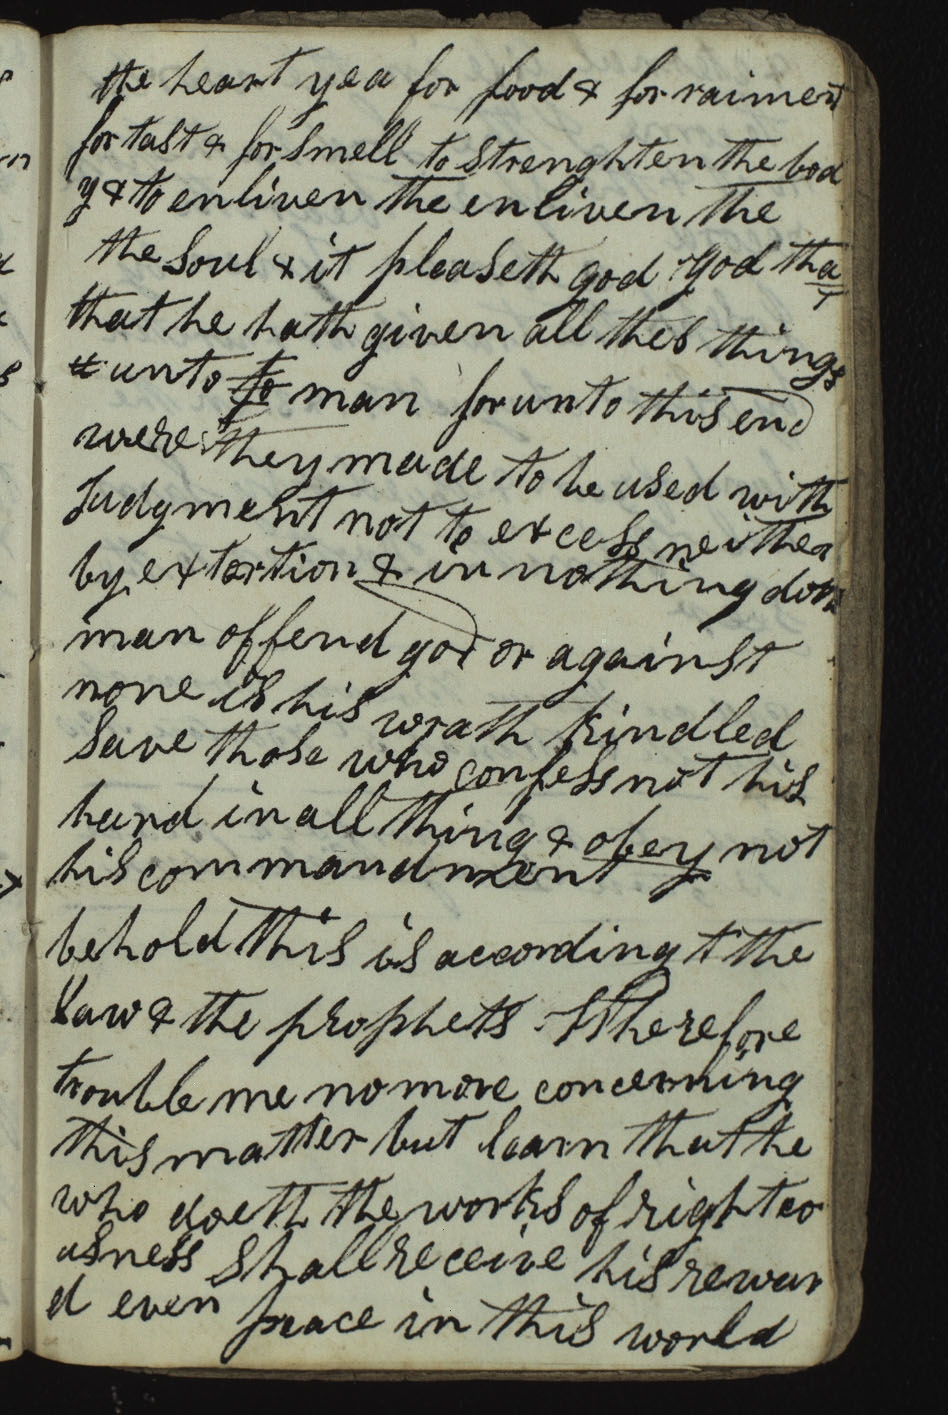 the heart yea for food & for raiment
for tast & for smell to strenghten the bod
y & to enliven the enliven the
the soul & it pleaseth god god tha
t
that he hath given all thes things
unto to man for unto this end
were they made to be used with
Judgment not to excess neither
by extortion & in nothing doth
man offend god or against
none is his wrath kindled
save those who confess not his
hand in all thing & obey not
his commandment
behold this is according t the
law & the prophets Wherefore
trouble me no more concerning
this matter but learn that he
who doeth the works of righteo
usness shall receive his rewar
d even peace in this world